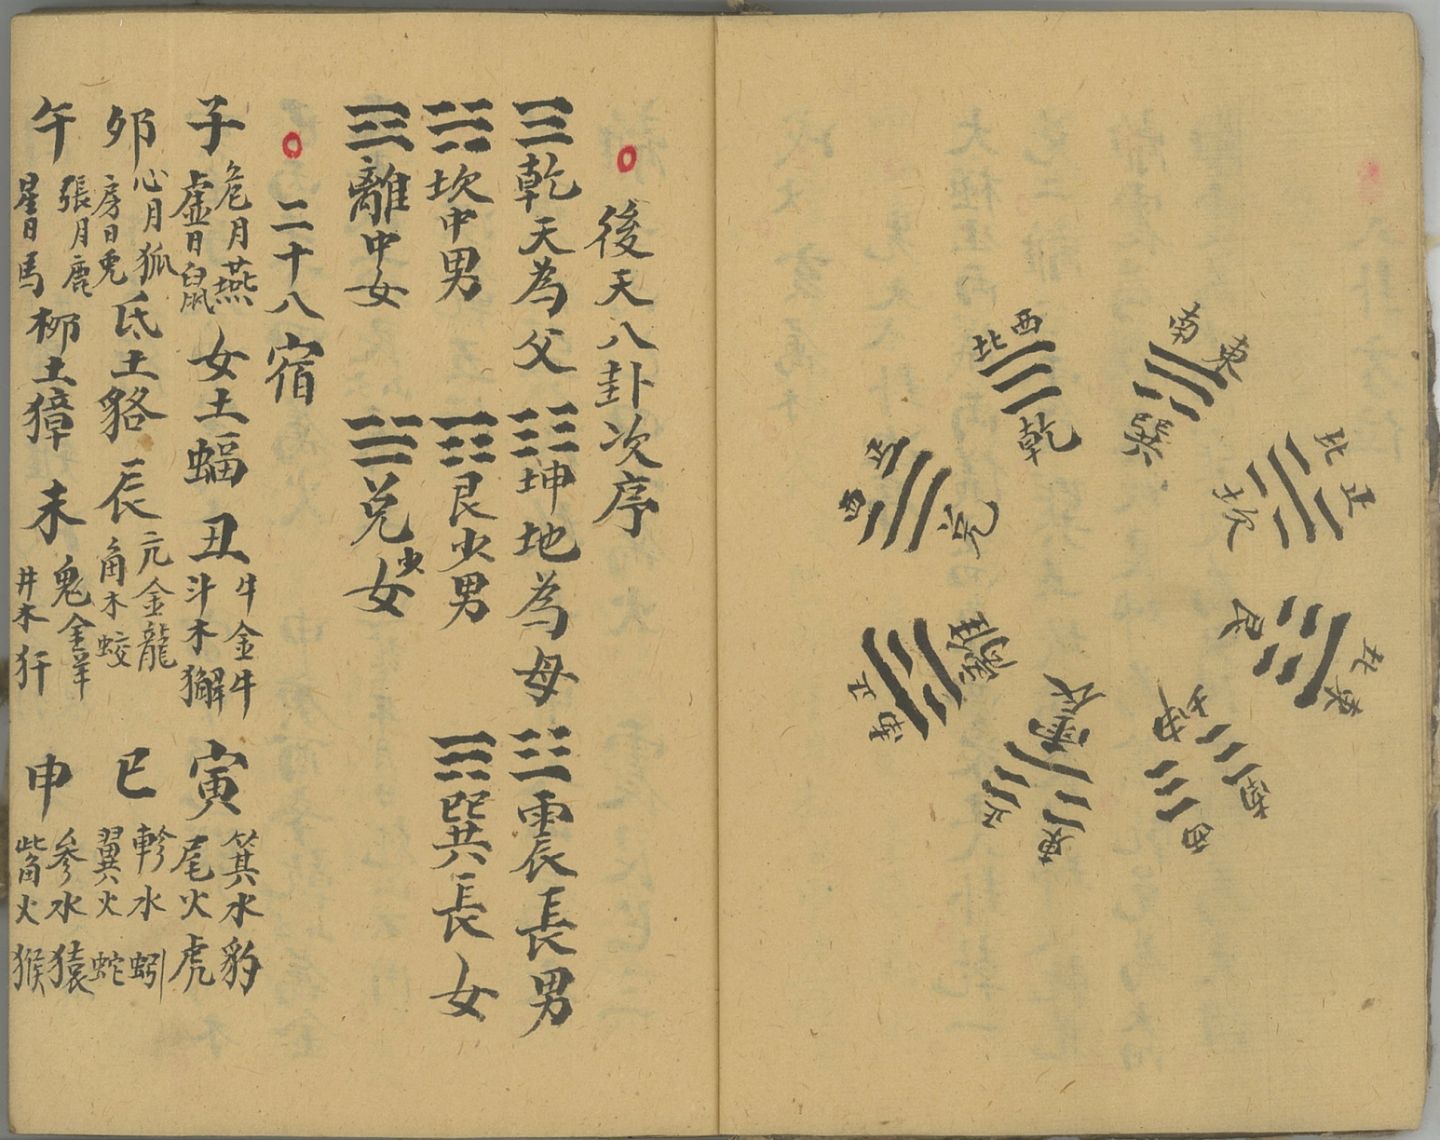 東南
巽
正北
坎
東北
艮
南西
坤
正東
震
正南
離
正西
兌
西北
乾
後天八卦次序
乾天為父 坤地為母 震長男
坎中男 艮少男 巽長女
離中女 兌少女
二十八宿
子 危月燕 虛日鼠 女土蝠 丑 牛金牛 斗木獬 寅 箕水豹 尾火虎
卯 心月狐 房日兔 氐土貉 辰 亢金龍 角木蛟 巳 軫水蚓 翼火蛇
午 張月鹿 星日馬 柳土獐 未 鬼金羊 井木犴 申 參水猿 觜火猴